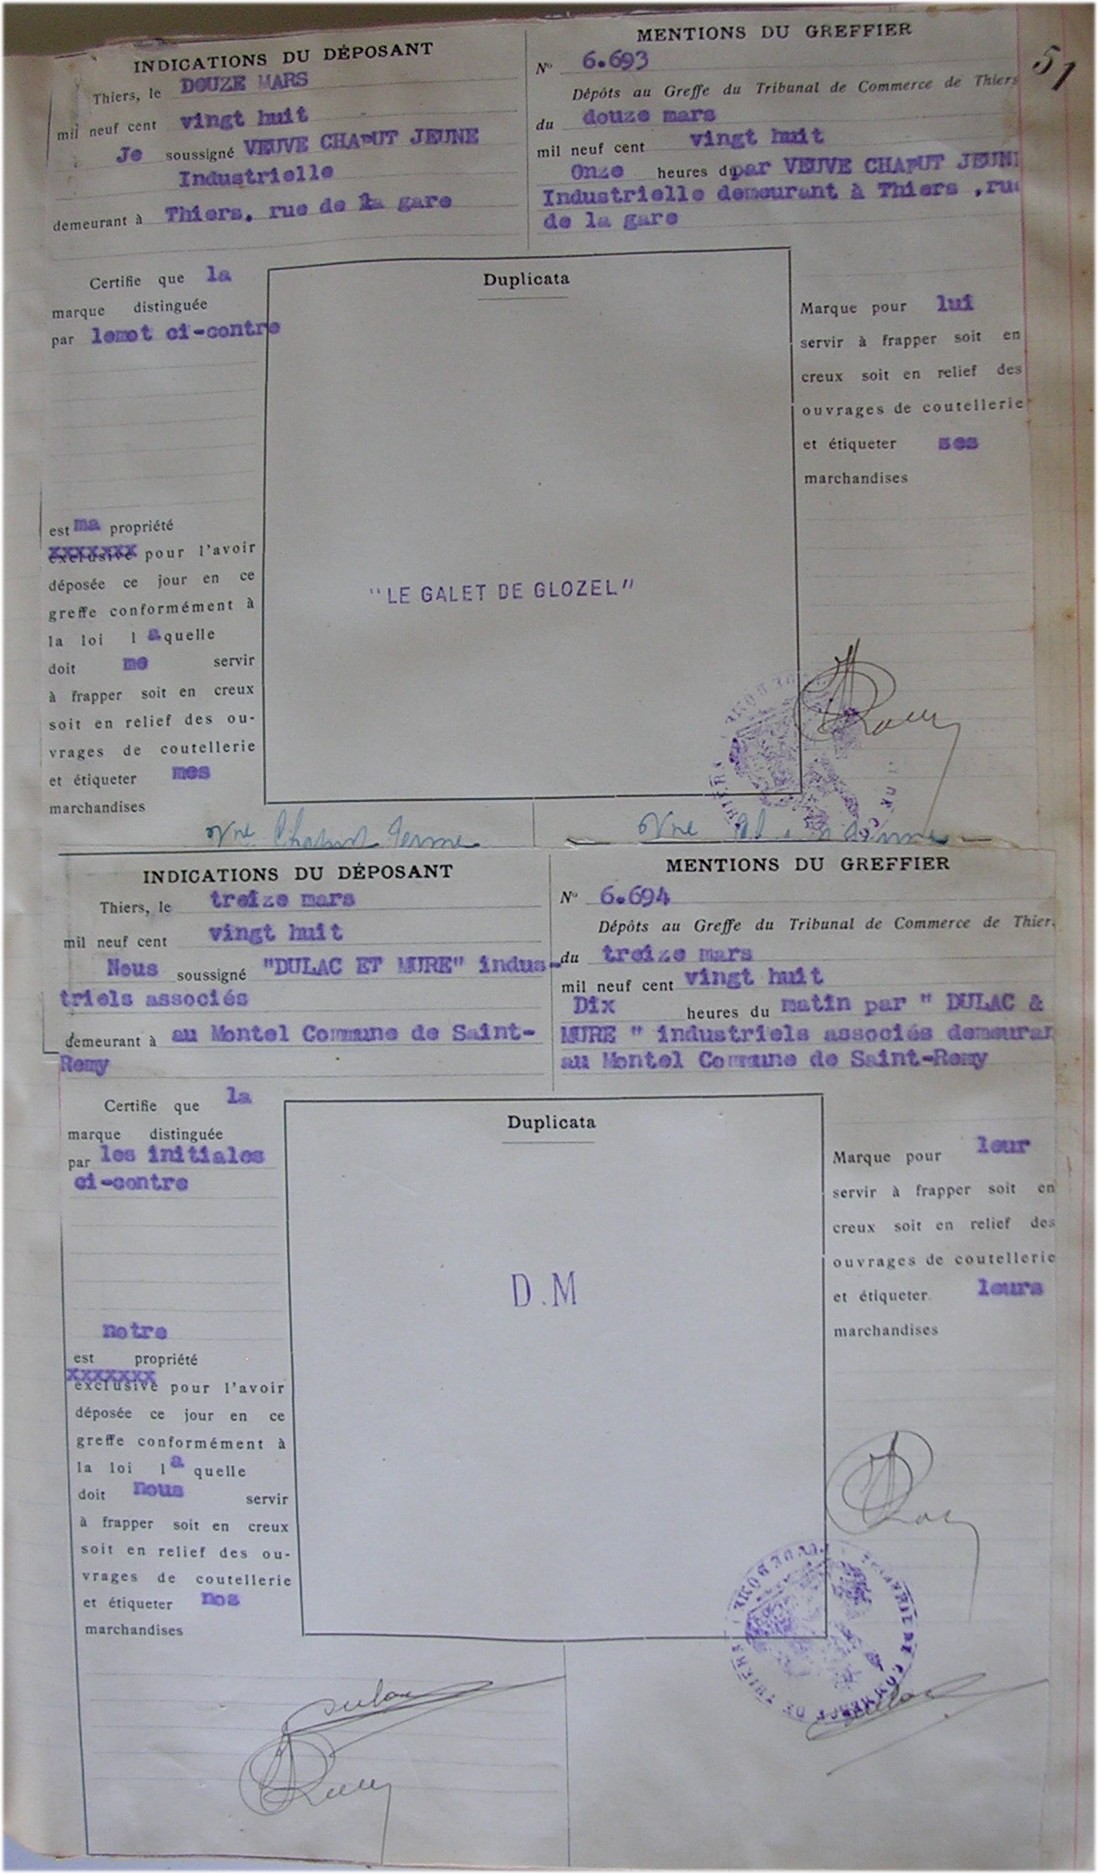 51
INDICATIONS DU DÉPOSANT
Thiers, le DOUZE MARS
mil neuf cent vingt huit
Je soussigné VEUVE CHAPUT JEUNE
Industrielle
demeurant à Thiers, rue de la gare
MENTIONS DU GREFFIER
N° 6.693
Dépôts au Greffe du Tribunal de Commerce de Thiers
du douze mars
mil neuf cent vingt huit
Onze heures du par VEUVE CHAPUT JEUN
Industrielle demeurant à Thiers ,rue
de la gare
Certifie que la
marque distinguée
par lemot ci-contre
est ma propriété
exclusive pour l'avoir
déposée ce jour en ce
greffe conformément à
la loi laquelle
doit me servir
à frapper soit en creux
soit en relief des ou-
vrages de coutellerie
et étiqueter mes
marchandises
Duplicata
"LE GALET DE GLOZEL"
Marque pour lui
servir à frapper soit en
creux soit en relief des
ouvrages de coutellerie
et étiqueter ses
marchandises
Vve Chaput Jeune
Vve
INDICATIONS DU DÉPOSANT
Thiers, le treize mars
mil neuf cent vingt huit
Nous soussigné "DULAC ET MURE" indus-
triels associés
demeurant à au Montel Commune de Saint-
Remy
MENTIONS DU GREFFIER
N° 6.694
Dépôts au Greffe du Tribunal de Commerce de Thier
du treize mars
mil neuf cent vingt huit
Dix heures du matin par " DULAC &
MURE " industriels associés demeuran
au Montel Commune de Saint-Remy
Certifie que la
marque distinguée
par les initiales
ci-contre
notre
est propriété
xxxxxxx
exclusive pour l'avoir
déposée ce jour en ce
greffe conformément à
la loi laquelle
doit nous servir
à frapper soit en creux
soit en relief des ou-
vrages de coutellerie
et étiqueter nos
marchandises
Duplicata
D.M
Marque pour leur
servir à frapper soit en
creux soit en relief des
ouvrages de coutellerie
et étiqueter leurs
marchandises
DE COMMERCE DE THIERS
Dulac
Dulac